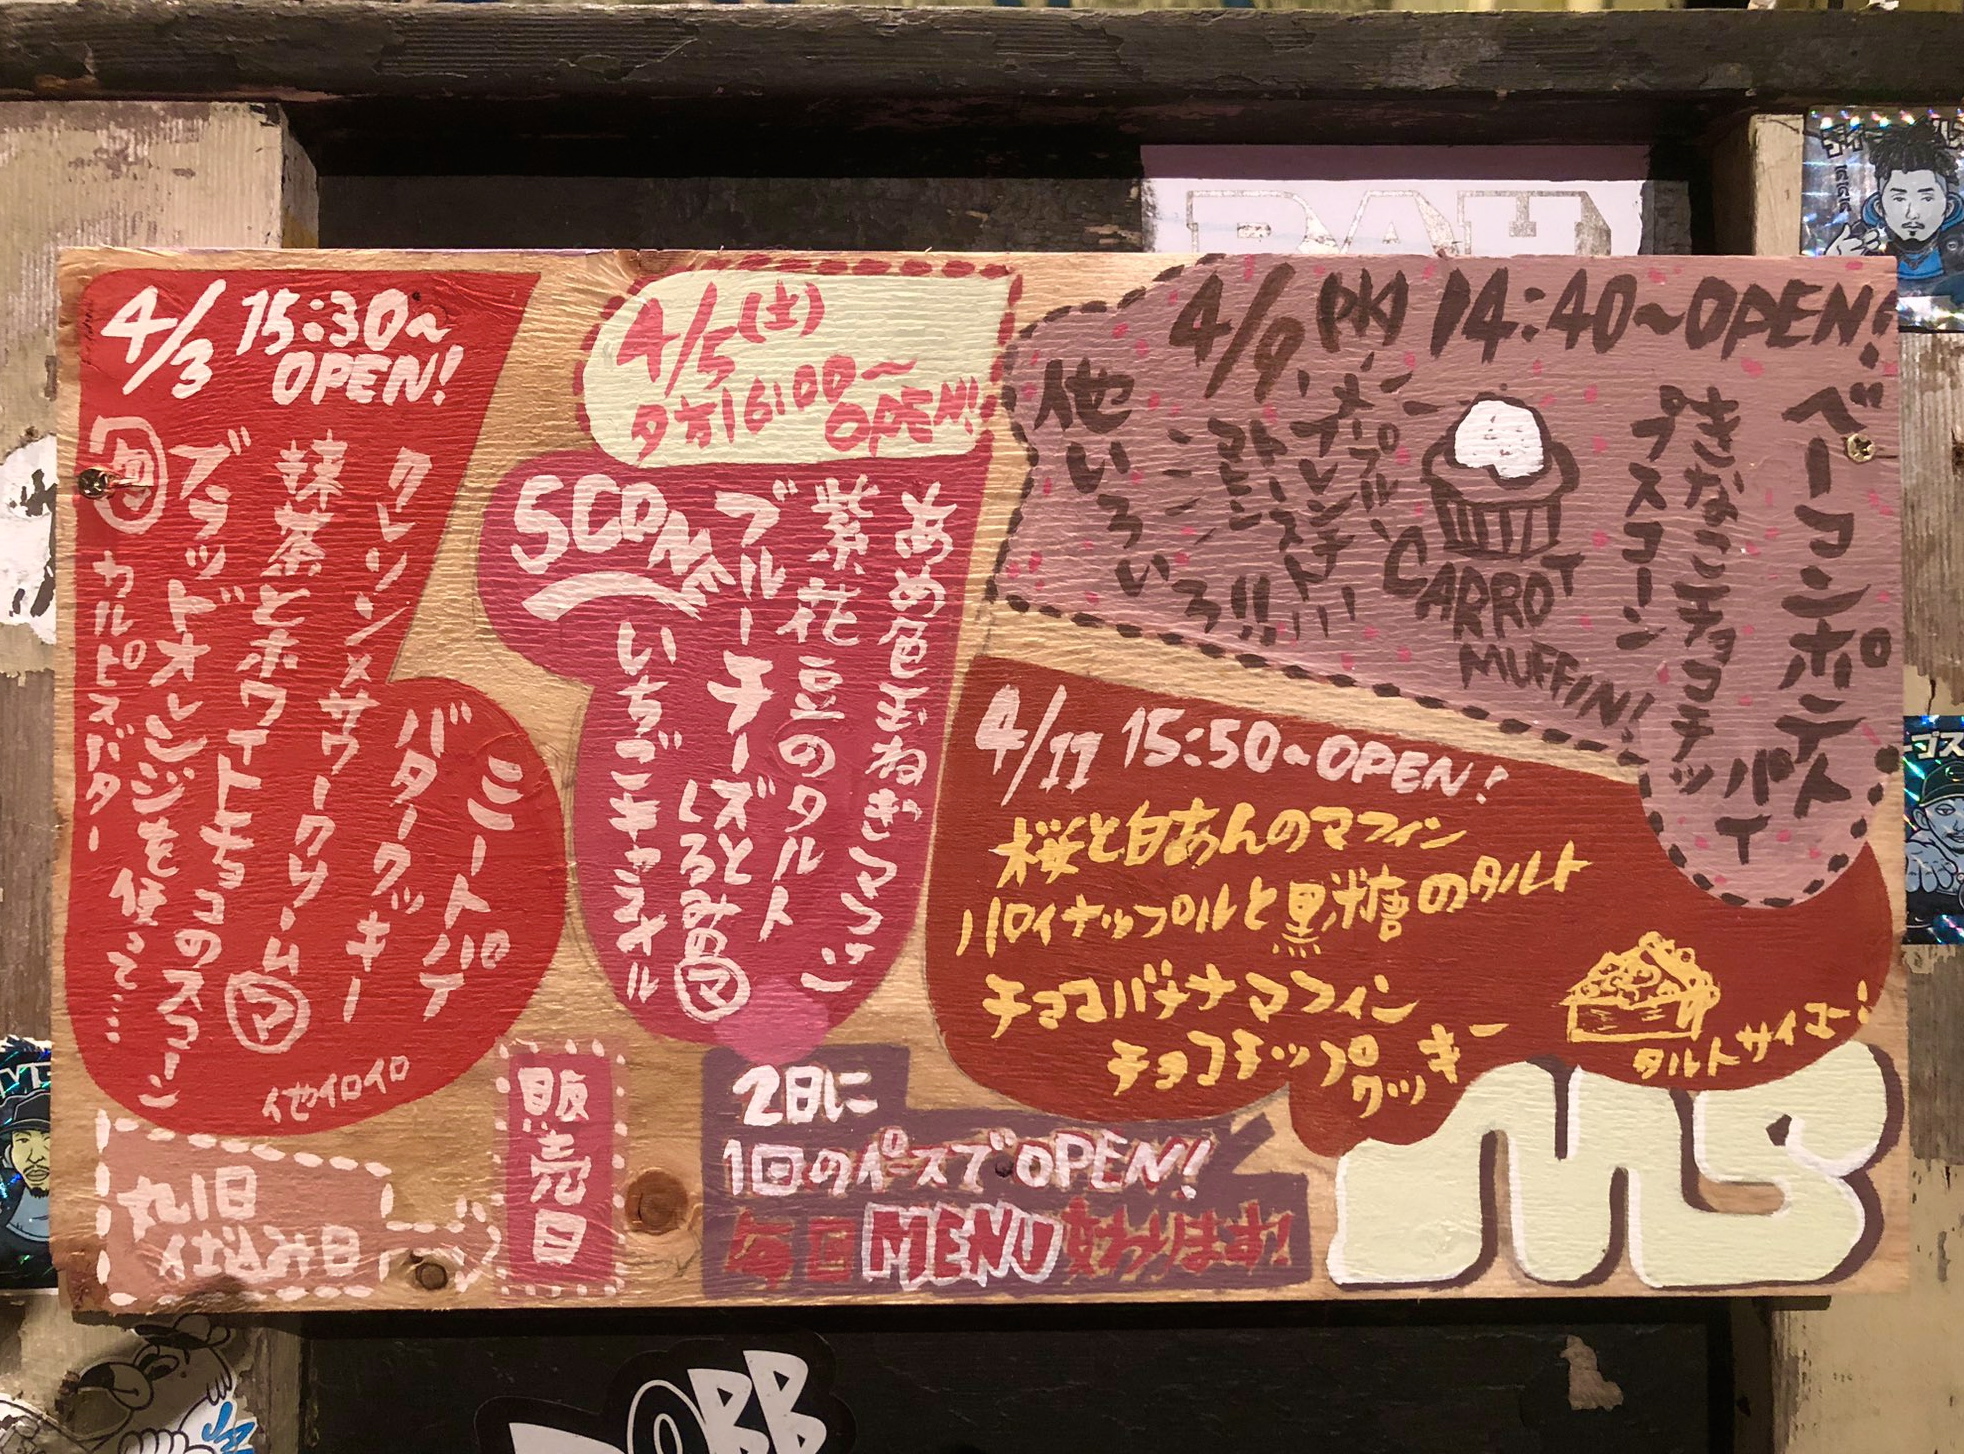 4/3 15:30~
OPEN!
ミートパイ
バタークッキー
クレソン×サワークリームマ
抹茶とホワイトチョコのスコーン
ブラッドオレンジを使って…
カルピスバター
他イロイロ
4/5(土)
夕方16:00~
OPEN!
あめ色玉ねぎマフィン
紫花豆のタルト
ブルーチーズと
くるみマ
SCONE
いちごキャラメル
4/9(水) 14:40~OPEN!
ベーコンポテト
パイ
きなこチョコチップスコーン
CARROT
MUFFIN!
メープル
フレンチ
トースト!!
他いろいろ!!
4/17 15:50~OPEN!
桜と白あんのマフィン
パイナップルと黒糖のタルト
チョコバナナマフィン
チョコチップクッキー
タルトサイコー!
丸1日
仕込み日
販売日
2日に
1回のペースでOPEN!
毎回MENU変わります!